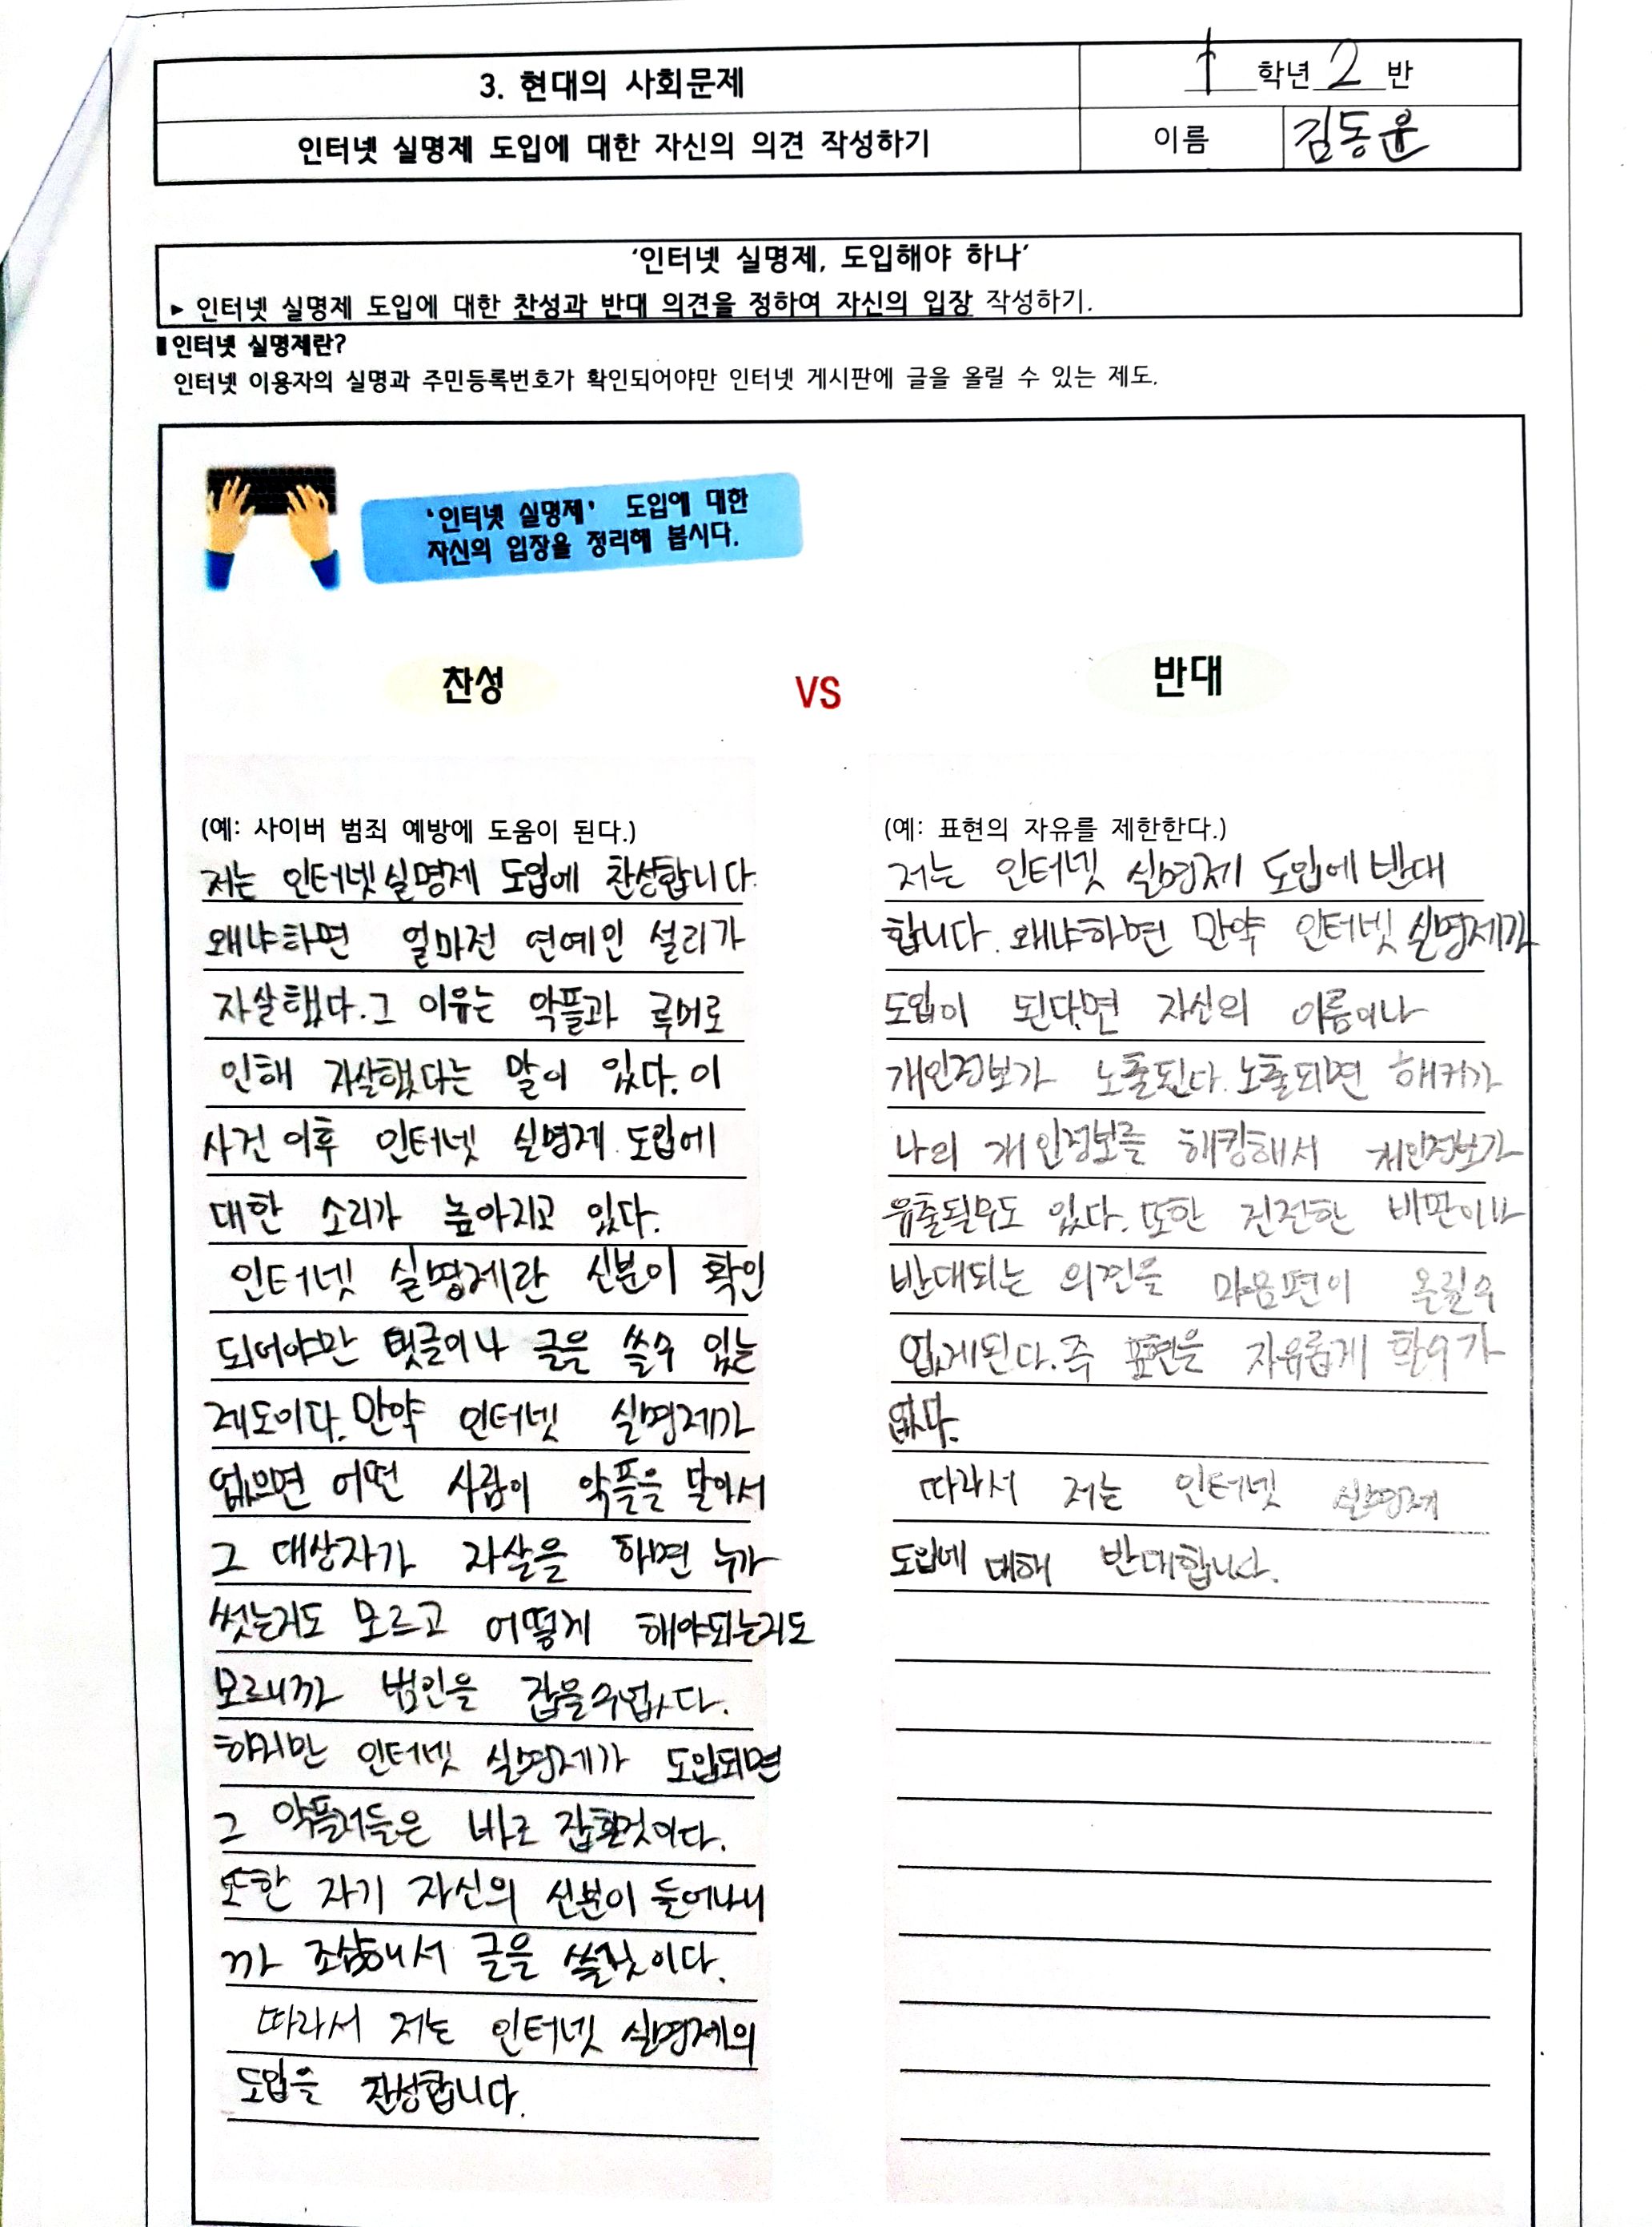 3. 현대의 사회문제
1 학년 2 반
인터넷 실명제 도입에 대한 자신의 의견 작성하기
이름 김동운
‘인터넷 실명제, 도입해야 하나’
▶ 인터넷 실명제 도입에 대한 찬성과 반대 의견을 정하여 자신의 입장 작성하기.
▮인터넷 실명제란?
인터넷 이용자의 실명과 주민등록번호가 확인되어야만 인터넷 게시판에 글을 올릴 수 있는 제도.
‘인터넷 실명제’ 도입에 대한
자신의 입장을 정리해 봅시다.
찬성
VS
반대
(예: 사이버 범죄 예방에 도움이 된다.)
저는 인터넷 실명제 도입에 찬성합니다.
왜냐하면 얼마전 연예인 설리가
자살했다. 그 이유는 악플과 루머로
인해 자살했다는 말이 있다. 이
사건 이후 인터넷 실명제 도입에
대한 소리가 높아지고 있다.
인터넷 실명제란 신분이 확인
되어야만 댓글이나 글을 쓸수 있는
제도이다. 만약 인터넷 실명제가
없으면 어떤 사람이 악플을 달아서
그 대상자가 자살을 하면 누가
썻는지도 모르고 어떻게 해야되는지도
모르니까 범인을 잡을수없다.
하지만 인터넷 실명제가 도입되면
그 악플러들은 바로 잡힐것이다.
또한 자기 자신의 신분이 들어나니
까 조심해서 글을 쓸것이다.
따라서 저는 인터넷 실명제의
도입을 찬성합니다.
(예: 표현의 자유를 제한한다.)
저는 인터넷 실명제 도입에 반대
합니다. 왜냐하면 만약 인터넷 실명제가
도입이 된다면 자신의 이름이나
개인정보가 노출된다. 노출되면 해커가
나의 개인정보를 해킹해서 개인정보가
유출될수도 있다. 또한 건전한 비판이나
반대되는 의견을 마음편이 올릴수
없게된다. 즉 표현을 자유롭게 할수가
없다.
따라서 저는 인터넷 실명제
도입에 대해 반대합니다.